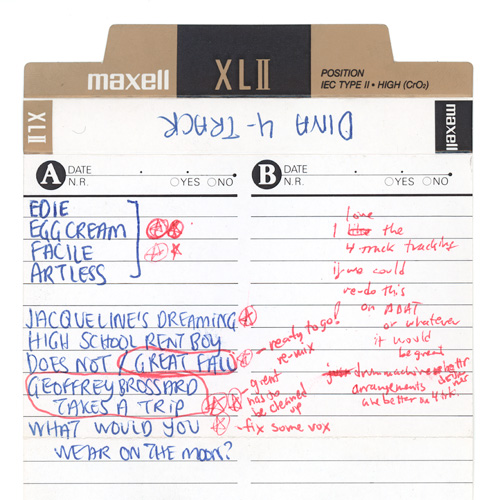 maxell XLII POSITION
IEC TYPE II • HIGH (CrO₂)
XLII
DINA 4-TRACK
maxell
A DATE
N.R. ○YES ○NO
EDIE
EGG CREAM
FACILE
ARTLESS
JACQUELINE'S DREAMING
HIGH SCHOOL RENT BOY
DOES NOT / GREAT FALL
GEOFFREY BROSSARD
TAKES A TRIP
WHAT WOULD YOU
WEAR ON THE MOON?
ready to go!
re-mix
great
has to
be cleaned
up
fix some vox
B DATE
N.R. ○YES ○NO
love
I like the
4 track tracking
if we could
re-do this
on ADAT
or whatever
it would
be great
just drum machine better
arrangements
are better on 4 trk.